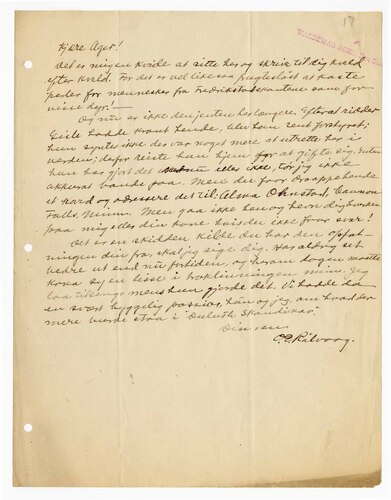 17
WALDEMAR AGER
Kjære Ager!
Det er ingen kvide at sitte her og skrive til dig kveld
efter kveld. For det er vel like saa frugtesløst at kaste
perler for mennesker fra Fredrikstadkanten som for
visse dyr!—
Og nu er ikke den jenten her længere. Efterat ridder
Gisle hadde kront hende, blev han rent
hun syntes ikke der var noget mere at utrette her i
verden; defor reiste hun hjem for at gifte sig. Enten
han har gjort det eller ikke, tør jeg ikke
akkurat bande paa. Men du faar draappehende
et kard og adressere det til: Alma Ohnstad, Cannon
Falls, Minn. Men gaa ikke hen og heng dig hverken
paa mig eller din kone hvis hun ikke svarer!
Det er en skidden kilde du har den opfat-
ningen din fra, skal jeg si dig. Har aldrig set
bedre ut end nu for tiden, og forom dagen maatte
kona sy en leise i boklinningen min. Jeg
laa tilsengs mens hun gjorde det. Vi hadde da
en svært hyggelig passiar, hun og jeg, om hvad der
mere burde staa i "Duluth Skandinav".
Din ven
O. E. Rølvaag.